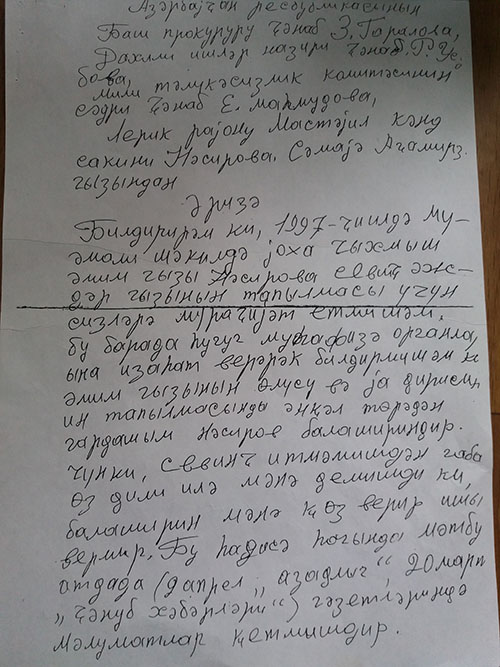 Азәрбајҹан республикасынын
Баш прокуруру ҹәнаб З. Гаралова,
Дахили ишләр назири ҹәнаб Р. Усу-
бова,
Мили тәлүкәсизлик комитәсинин
сәдри ҹәнаб Е. Маһмудова,
Лерик рајону Мастәјил кәнд
сакини Нәсирова Сәмајә Ағамирз.
гызындан
Әризә
Билдирирәм ки, 1997-ҹи илдә му-
әмалы шәкилдә јоха чыхмыш
әмим гызы Нәсирова Севинҹ әж-
дәр гызынын тапылмасы үчүн
сизләрә мүраҹијәт етмишәм.
бу барәдә һүгуг мүһафизә органла
ына изаһат верәрәк билдирмишәм к
әмим гызынын өлүсү вә ја дириси
ин тапылмасында әнҝәл төрәдән
гардашым Нәсиров балашириндир.
Чүнки, Севинҹ итмәмишдән габа
өз дили илә мәнә демишди ки,
балаширин мәнә ҝөз верир ишыг
вермир. Бу һадисә һагында мәтбу
атдада (4 апрел „азадлыг“, 20 март
„ҹәнуб хәбәрләри“) гәзетләриндә
мәлуматлар ҝетмишдир.